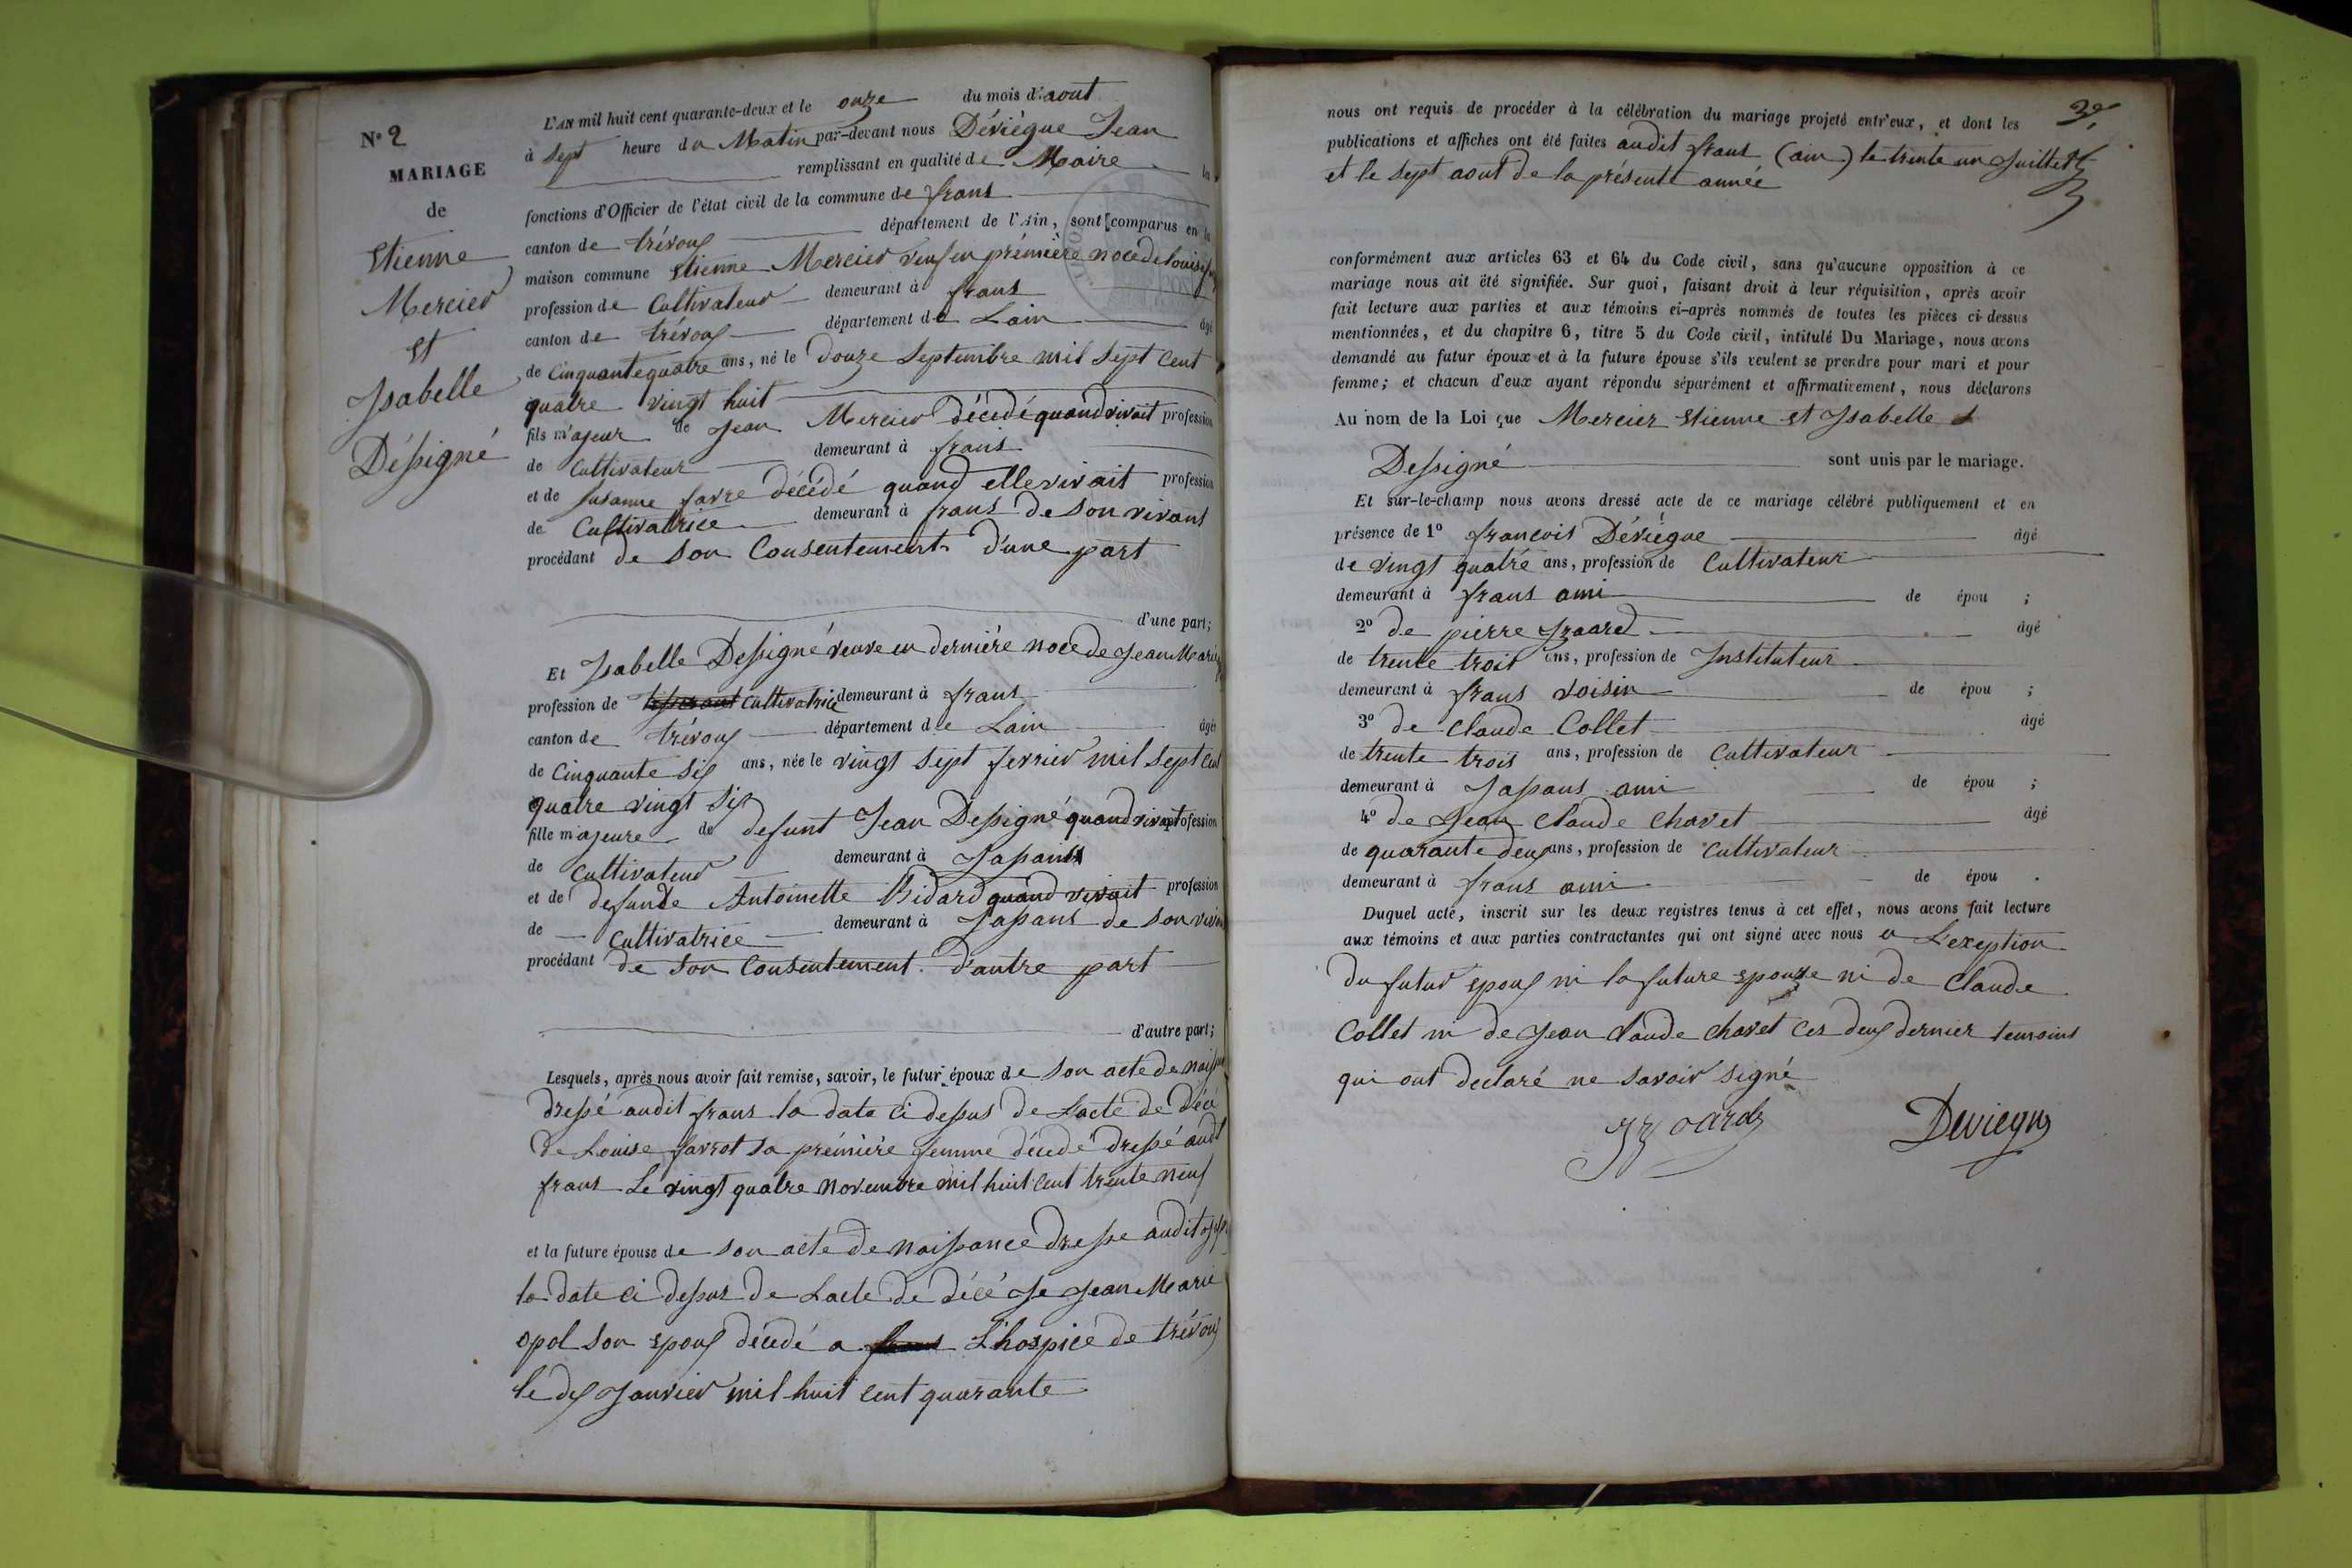 N° 2
MARIAGE
de
Etienne
Mercier
et
Isabelle
Dessigné
L'AN mil huit cent quarante-deux et le onze du mois d'aout
à sept heure du Matin par-devant nous Déviégue Jean
remplissant en qualité de Maire
fonctions d'Officier de l'état civil de la commune de frans
canton de trévoux département de l'Ain, sont comparus en la
maison commune Etienne Mercier veuf en prémière noce de louise
profession de Cultivateur demeurant à frans
canton de trévoux département de Lain âgé
de Cinquante quatre ans, né le Douze Septembre mil Sept Cent
quatre vingt huit
fils majeur de Jean Mercier décédé quand vivait profession
de Cultivateur demeurant à frans
et de Susanne favre décédé quand elle vivait profession
de Cultivatrice demeurant à frans de son vivant
procédant de son Consentement d'une part
d'une part;
Et Isabelle Dessigné veuve en dernière noce de Jean Marie
profession de Cultivatrice demeurant à frans
canton de trévoux département de Lain âgée
de Cinquante six ans, née le vingt sept fevrier mil sept cent
quatre vingt six
fille majeure de defunt Jean Dessigné quand vivait profession
de Cultivateur demeurant à Jassans
et de defunte Antoinette Bidard quand vivait profession
de Cultivatrice demeurant à Jassans de son vivan
procédant de son Consentement. D'autre part
d'autre part;
Lesquels, après nous avoir fait remise, savoir, le futur époux de son acte de naiss
dressé audit frans la date ci dessus de Lacte de décé
de Louise favrot sa prémière femme décédé dressé audt
frans Le vingt quatre Novembre mil huit Cent trente neuf
et la future épouse de son acte de naissance dressé audit
la date ci dessus de Lacte de décé de Jean Marie
opol son epoux décédé a L'hospice de trévoux
le dix Janvier mil huit cent quarante
nous ont requis de procéder à la célébration du mariage projeté entr'eux, et dont les
publications et affiches ont été faites audit frans (ain) le trente un Juillet
et le sept aout de la présente année
conformément aux articles 63 et 64 du Code civil, sans qu'aucune opposition à ce
mariage nous ait été signifiée. Sur quoi, faisant droit à leur réquisition, après avoir
fait lecture aux parties et aux témoins ci-après nommés de toutes les pièces ci-dessus
mentionnées, et du chapitre 6, titre 5 du Code civil, intitulé Du Mariage, nous avons
demandé au futur époux et à la future épouse s'ils veulent se prendre pour mari et pour
femme; et chacun d'eux ayant répondu séparément et affirmativement, nous déclarons
Au nom de la Loi que Mercier Etienne et Isabelle
Dessigné sont unis par le mariage.
Et sur-le-champ nous avons dressé acte de ce mariage célébré publiquement et en
présence de 1° francois Déviégue âgé
de vingt quatre ans, profession de Cultivateur
demeurant à frans ami de épou ;
2° de pierre Izoard âgé
de trente trois ans, profession de Instituteur
demeurant à frans voisin de épou ;
3° de Claude Collet âgé
de trente trois ans, profession de Cultivateur
demeurant à Jassans ami de épou ;
4° de Jean Claude Chavet âgé
de quarante deux ans, profession de Cultivateur
demeurant à frans ami de épou .
Duquel acte, inscrit sur les deux registres tenus à cet effet, nous avons fait lecture
aux témoins et aux parties contractantes qui ont signé avec nous a L'exeption
du futur epoux ni la future epouze ni de Claude
Collet ni de Jean Claude Chavet ces deux dernier temoins
qui ont declaré ne savoir signé
Izoard Deviegue